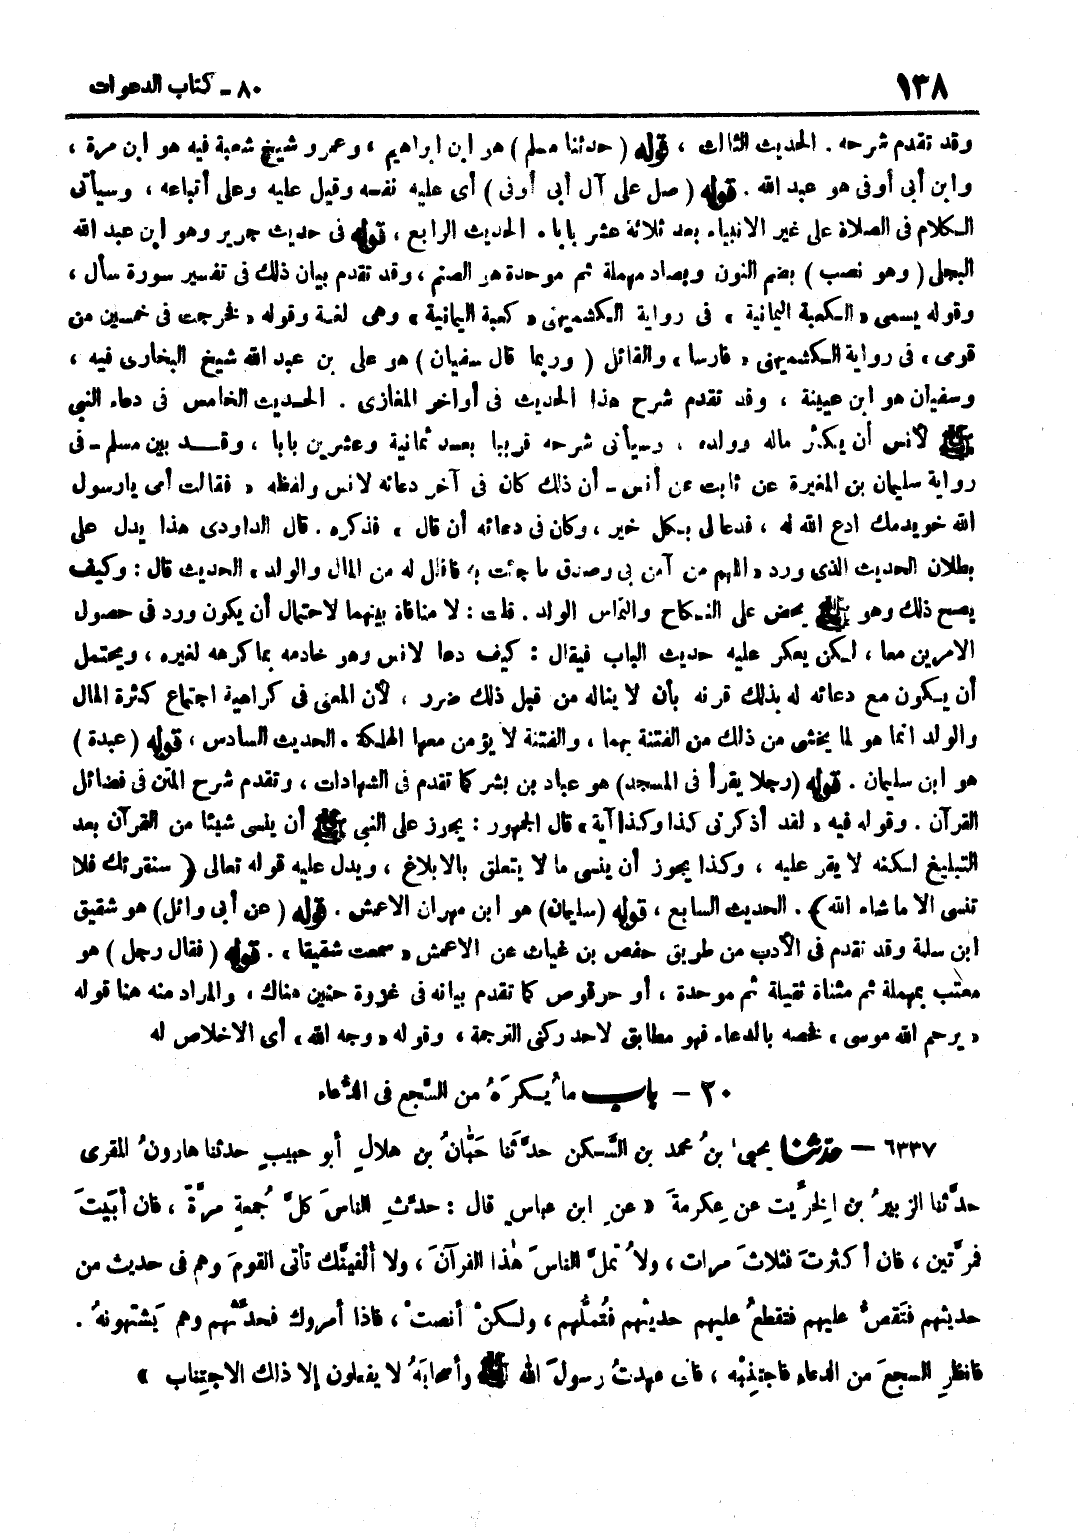 ١٣٨
٨٠ ـ كتاب الدعوات
وقد تقدم شرحه . الحديث الثالث ، قوله ( حدثنا مسلم ) هو ابن ابراهيم ، وعمرو شيخ شعبة فيه هو ابن مرة ،
وابن أبى أوفى هو عبد الله . قوله ( صل على آل أبى أوفى ) أى عليه نفسه وقيل عليه وعلى أتباعه ، وسيأتى
الكلام فى الصلاة على غير الانبياء بعد ثلاثة عشر بابا . الحديث الرابع ، قوله فى حديث جرير وهو ابن عبد الله
البجلى ( وهو نصب ) بضم النون وبصاد مهملة ثم موحدة هو الصنم ، وقد تقدم بيان ذلك فى تفسير سورة سأل ،
وقوله يسمى « الكعبة اليمانية » فى رواية الكشميهنى « كعبة اليمانية » وهى لغة وقوله « فخرجت فى خمسين من
قومى » فى رواية الكشميهنى « فارسا » والقائل ( وربما قال سفيان ) هو على بن عبد الله شيخ البخارى فيه ،
وسفيان هو ابن عيينة ، وقد تقدم شرح هذا الحديث فى أواخر المغازى . الحديث الخامس فى دعاء النبي
ﷺ لأنس أن يكثر ماله وولده ، وسيأتى شرحه قريبا بعد ثمانية وعشرين بابا ، وقد بين مسلم ـ فى
رواية سليمان بن المغيرة عن ثابت عن أنس ـ أن ذلك كان فى آخر دعائه لانس ولفظه « فقالت أمى يارسول
الله خويدمك ادع الله له ، فدعا لى بكل خير ، وكان فى دعائه أن قال » فذكره . قال الداودى هذا يدل على
بطلان الحديث الذى ورد « اللهم من آمن بى وصدق ما جئت به فاقلل له من المال والولد » الحديث قال : وكيف
يصح ذلك وهو ﷺ يحض على النكاح والتماس الولد . قلت : لا منافاة بينهما لاحتمال أن يكون ورد فى حصول
الامرين معا ، لكن يعكر عليه حديث الباب فيقال : كيف دعا لانس وهو خادمه بما كرهه لغيره ، ويحتمل
أن يكون مع دعائه له بذلك قرنه بأن لا يناله من قبل ذلك ضرر ، لأن المعنى فى كراهية اجتماع كثرة المال
والولد انما هو لما يخشى من ذلك من الفتنة بهما ، والفتنة لا يؤمن معها الهلكة . الحديث السادس ، قوله ( عبدة )
هو ابن سليمان . قوله ( رجلا يقرأ فى المسجد ) هو عباد بن بشر كما تقدم فى الشهادات ، وتقدم شرح المتن فى فضائل
القرآن . وقوله فيه « لقد أذكرنى كذا وكذا آية » قال الجمهور : يجوز على النبي ﷺ أن ينسى شيئا من القرآن بعد
التبليغ لكنه لا يقر عليه ، وكذا يجوز أن ينسى ما لا يتعلق بالابلاغ ، ويدل عليه قوله تعالى ﴿ سنقرئك فلا
تنسى الا ما شاء الله ﴾ . الحديث السابع ، قوله ( سليمان ) هو ابن مهران الاعمش . قوله ( عن أبى وائل ) هو شقيق
ابن سلمة وقد تقدم فى الأدب من طريق حفص بن غياث عن الاعمش « سمعت شقيقا » . قوله ( فقال رجل ) هو
معتب بمهملة ثم مثناة ثقيلة ثم موحدة ، أو حرقوص كما تقدم بيانه فى غزوة حنين هناك ، والمراد منه هنا قوله
« يرحم الله موسى » فخصه بالدعاء فهو مطابق لاحد ركنى الترجمة ، وقوله « وجه الله » أى الاخلاص له
٢٠ ـ باب ما يُكرَهُ من السَّجع فى الدُّعاء
٦٣٣٧ ـ حدثنا يحيى بنُ محمد بن السَّكن حدَّثَنا حَبَّانُ بن هلالٍ أبو حبيبٍ حدثنا هارونُ المقرى
حدَّثنا الزبيرُ بن الخرِّيت عن عِكرمةَ « عنِ ابن عباسٍ قال : حدِّثِ الناسَ كلَّ جُمعةٍ مرَّةً ، فان أبَيتَ
فمرَّتين ، فان أكثرتَ فثلاثَ مرات ، ولا تُملَّ الناسَ هٰذا القرآنَ ، ولا ألفينَّك تأتى القومَ وهم فى حديث من
حديثهم فتَقصُّ عليهم فتقطعُ عليهم حديثهم فتُملُّهم ، ولكنْ أنصتْ ، فاذا أمروك فحدِّثهم وهم يَشتهونهُ .
فانظرِ السجعَ من الدعاء فاجتنِبْه ، فانى عهدتُ رسولَ الله ﷺ وأصحابَهُ لا يفعلون إلا ذلك الاجتِناب »